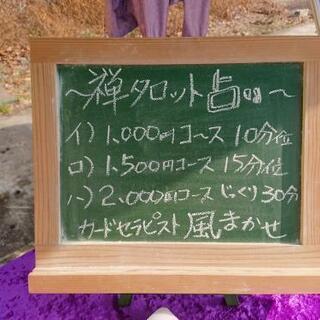 ～禅タロット占い～
イ）1,000円コース 10分位
ロ）1,500円コース 15分位
ハ）2,000円コース じっくり30分
カードセラピスト 風まかせ